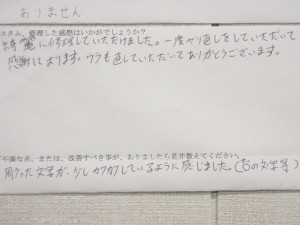 ありません
スタム、整理した感想はいかがでしょうか？
綺麗に修理していただけました。一度やり直しをしていただいて
感謝しております。ウラも直していただいてありがとうございます。
不満な点、または、改善すべき事が、ありましたら是非教えてください。
用った文字が、少しカクカクしているように感じました。(右の文字等)